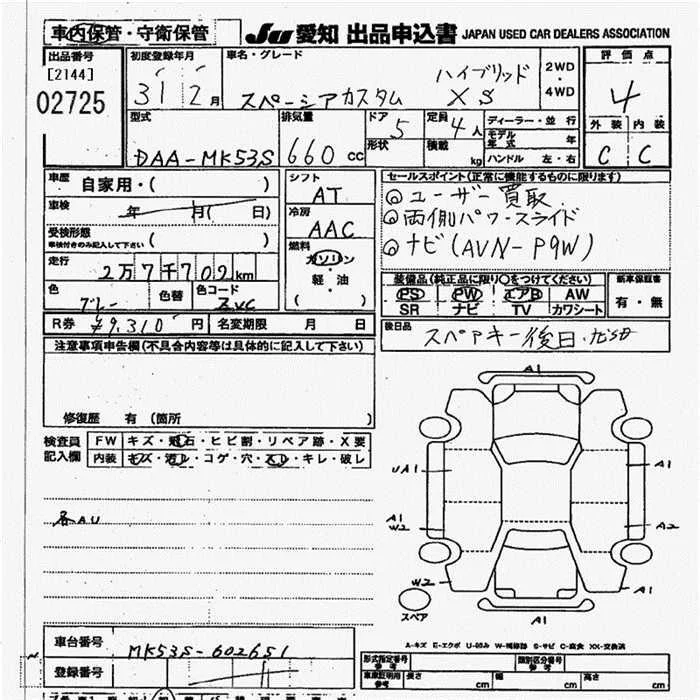 車内保管・守衛保管
JU 愛知 出品申込書 JAPAN USED CAR DEALERS ASSOCIATION
出品番号
[2144]
02725
初度登録年月
31 2月
車名・グレード
スペーシアカスタム
ハイブリッド
XS
2WD
・
4WD
評価点
4
外装 内装
C C
型式
DAA-MK53S
排気量
660cc
ドア
5
形状
定員
4人
積載
kg
ディーラー・並行
モデル年式 年
ハンドル 左・右
車歴
自家用・( )
車検
年 月( 日)
受検形態
車検付きのみ記入して下さい ( )
走行
2万7千702km
色
グレー
色替
色コード
ZVC
シフト
AT
冷房
AAC
燃料
ガソリン
・
軽・油
( )
セールスポイント(正常に機能するものに限ります)
◎ユーザー買取
◎両側パワースライド
◎ナビ(AVN-P9W)
装備品(純正品に限り○をつけてください)
PS PW エアB AW
SR ナビ TV カワシート
新車保証書
有・無
R券 ¥9,310円
名変期限 月 日
後日品
スペアキー後日
注意事項申告欄(不具合内容等は具体的に記入して下さい)
修復歴 有(箇所 )
検査員
記入欄
FW キズ・飛石・ヒビ割・リペア跡・X要
内装 キズ・汚レ・コゲ・穴・スレ・キレ・破レ
各AU
A1
UA1
A1
A1
W2
A2
W2
A1
A1
スペア
A-キズ E-エクボ U-凹み W-補修跡 S-サビ C-腐食 XX-交換済
車台番号
MK53S-602651
登録番号
形式指定番号
参考
類別区分番号
参考
車庫証明用
参考
長さ cm
幅 cm
高さ cm